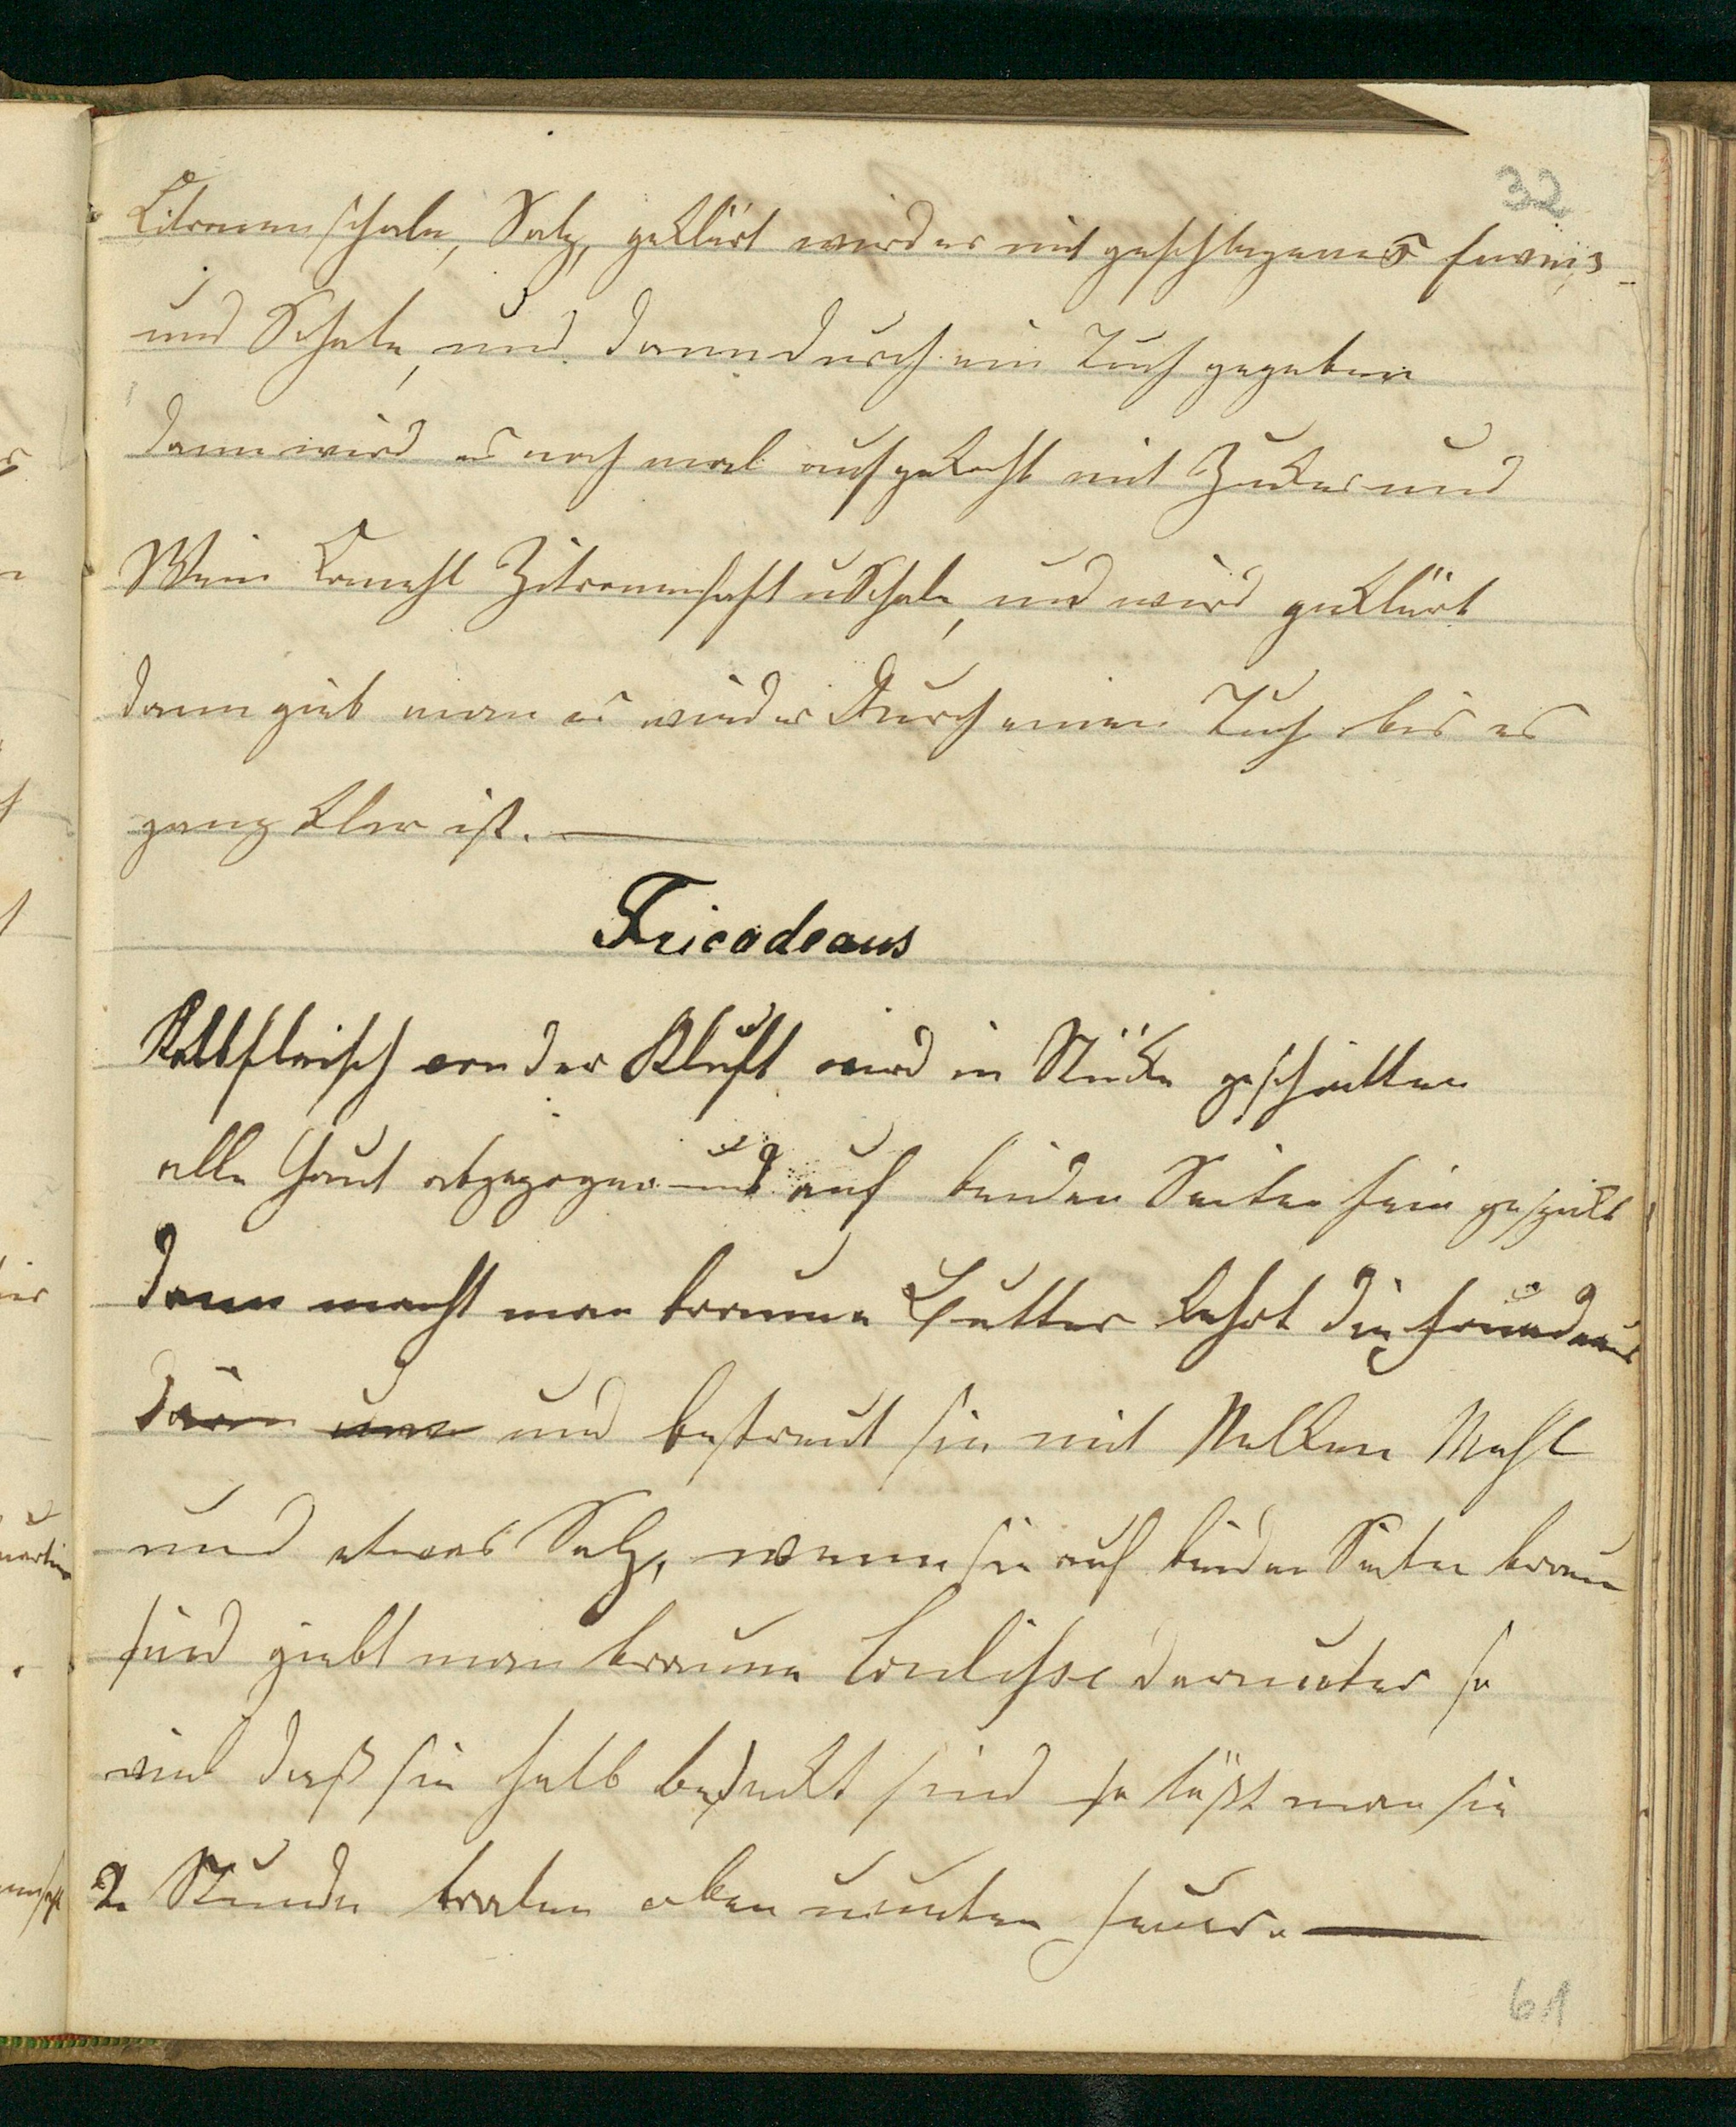 32
Citronenschale, Salz, geklärt wird es mit geschlagenes Eweis
und Schale, und dann durch ein Tuch gegeben
dann wird es noch mal aufgekocht mit Zuker und
Wein Kaneehl Zitronensaft u Schale, und wird geklärt
dann gieb man es wieder durch einen Tuch bis es
ganz klar ist.
Fricadeaus
Kalbfleisch von der Kluft wird in Stücke geschnitten
alle Haut abgezogen und auf beiden Seiten fein gespickt
dann macht man braune Butter kehrt die
darin um und bestreut sie mit Nelken Mehl
und etwas Salz, wenn sie auf beiden Seiten braun
sind giebt man braune Coulisse darunter so
viel daß sie halb bedeckt sind so läßt man sie
2 Stunde braten oben u unten Feuer.
61